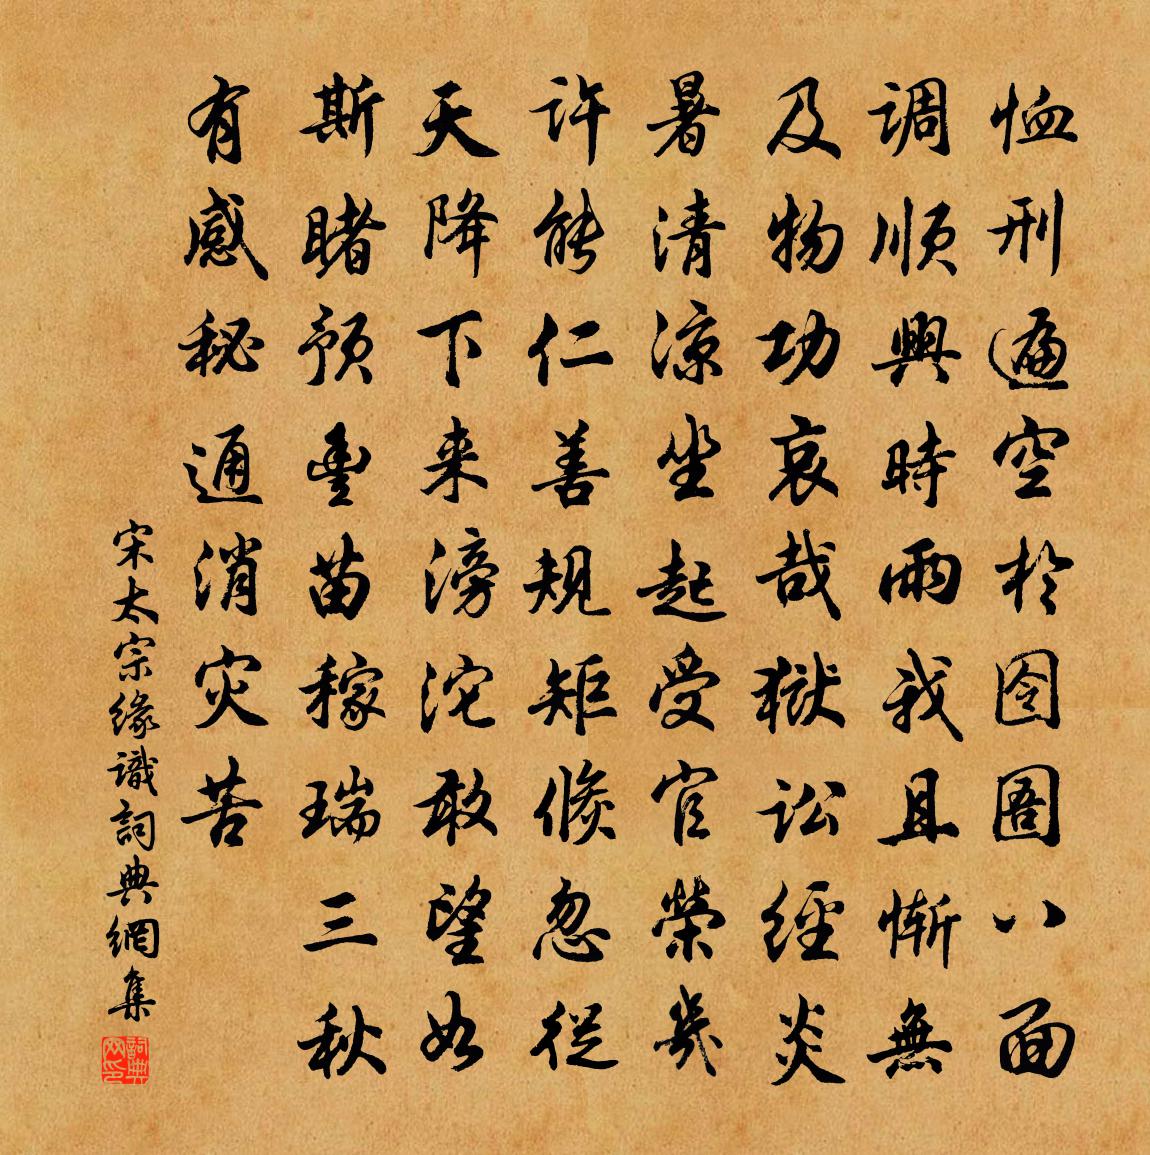 恤刑遍空於囹圄八面
调顺興時雨我且慚無
及物功哀哉獄訟經炎
暑清凉坐起受官榮幾
许能仁善規矩倏忽從
天降下来滂沱敢望如
斯睹预豊苗稼瑞三秋
有感秘通消灾苦
宋太宗缘識詞典網集
詞典网印